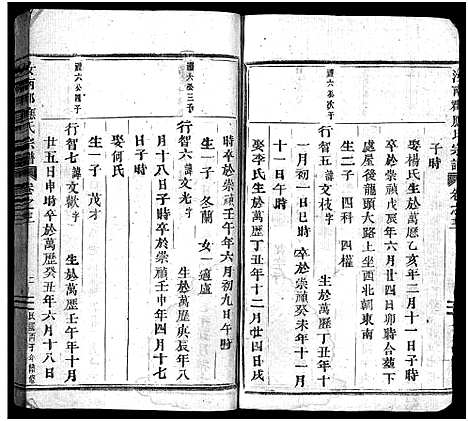 汝南郡應氏宗譜
卷之三
子時
娶楊氏生於萬歷乙亥年三月十一日子時
卒於崇禎戊辰年六月廿四日卯時合葬下
處屋後龍頭大路上坐西北朝東南
生二子 四科 四權
禮六公次子
行智五 諱文枝字 生於萬歷丁丑年十
一月初一日巳時 卒於崇禎癸未年十一月
十一日午時
娶李氏生於萬歷丁丑年十二月廿四日戌
時卒於崇禎壬午年六月初九日午時
生一子 冬蘭 女一適盧
禮六公三子
行智六 諱文光字 生於萬歷庚辰年八
月十八日子時卒於崇禎壬申年四月十七
日子時
娶何氏
生一子 茂才
禮六公四子
行智七 諱文歡字 生於萬歷 年十月
廿五日申時卒於 年六月十八日
汝南郡應氏宗譜
卷之三